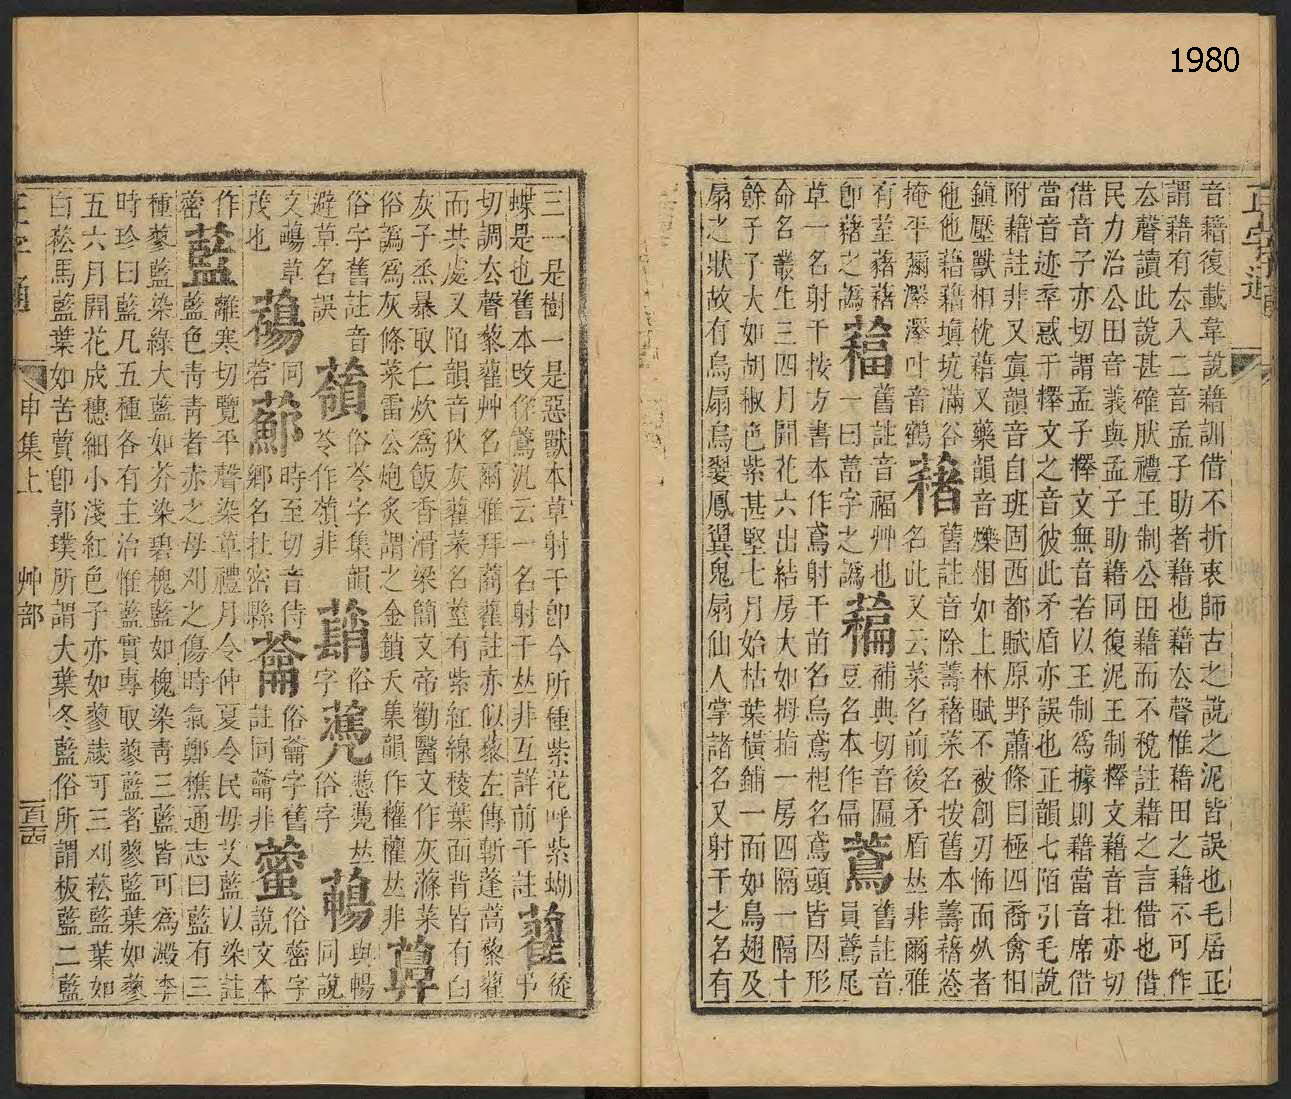 1980
正字通
音藉復載韋說藉訓借不折衷師古之說之泥皆誤也毛居正
謂藉有去入二音孟子助者藉也藉去聲惟藉田之藉不可作
去聲讀此說甚確肰禮王制公田藉而不稅註藉之言借也借
民力治公田音義與孟子助藉同復泥王制釋文藉音在亦切
借音子亦切謂孟子釋文無音若以王制爲據則藉當音席借
當音迹率惑于釋文之音彼此矛盾亦誤也正韻七陌引毛說
附藉註非又寘韻音自班固西都賦原野蕭條目極四裔禽相
鎮壓獸相枕藉又藥韻音爍相如上林賦不被創刃怖而𣦸者
他他藉藉塡坑滿谷䕭舊註音除䔲䕭菜名按舊本䔲藉恣
掩平彌澤澤叶音鶴名此又云菜名前後矛盾𠀤非爾雅
有菫藸藉蕵舊註音福艸也補典切音匾舊註音
卽藸之譌一曰葍字之譌藊豆名本作扁蔦員鳶尾
草一名射干按方書本作鳶射干苖名烏鳶根名鳶頭皆因形
命名叢生三四月開花六出結房大如拇指一房四隔一隔十
餘子子大如胡椒色紫甚堅七月始枯葉橫鋪一面如鳥翅及
扇之狀故有烏扇烏翣鳳翼鬼扇仙人掌諸名又射干之名有
三一是樹一是惡獸本草射干卽今所種紫花呼紫蝴藋從
蝶是也舊本攺作鳶汎云一名射干𠀤非互詳前干註弔
切調去聲藜藋艸名爾雅拜蔏藋註亦似藜左傳斬蓬蒿藜藋
而共處又陌韻音狄灰藋菜名莖有紫紅線稜葉面背皆有白
灰子烝暴取仁炊爲飯香滑梁簡文帝勸醫文作灰滌菜
俗譌爲灰條菜雷公炮炙謂之金鎖天集韻作蘿蘿𠀤非
俗字舊註音俗苓字集韻俗葸㼐𠀤與暢
避草名誤苓作蘋非字俗字同說
文蘯草同時至切音侍俗䈰字舊俗䔾字
茂也菪鄉名在密縣註同薈非說文本
作離寒切覽平聲染草禮月令仲夏令民毋艾藍以染註
䔾藍藍色靑靑者赤之母刈之傷時氣鄭樵通志曰藍有三
種蓼藍染綠大藍如芥染碧槐藍如槐染靑三藍皆可爲澱李
時珍曰藍凡五種各有主治惟藍實專取蓼藍者蓼藍葉如蓼
五六月開花成穗細小淺紅色子亦如蓼歲可三刈菘藍葉如
白菘馬藍葉如苦蕒卽郭璞所謂大葉冬藍俗所謂板藍二藍
正字通
申集上
艸部